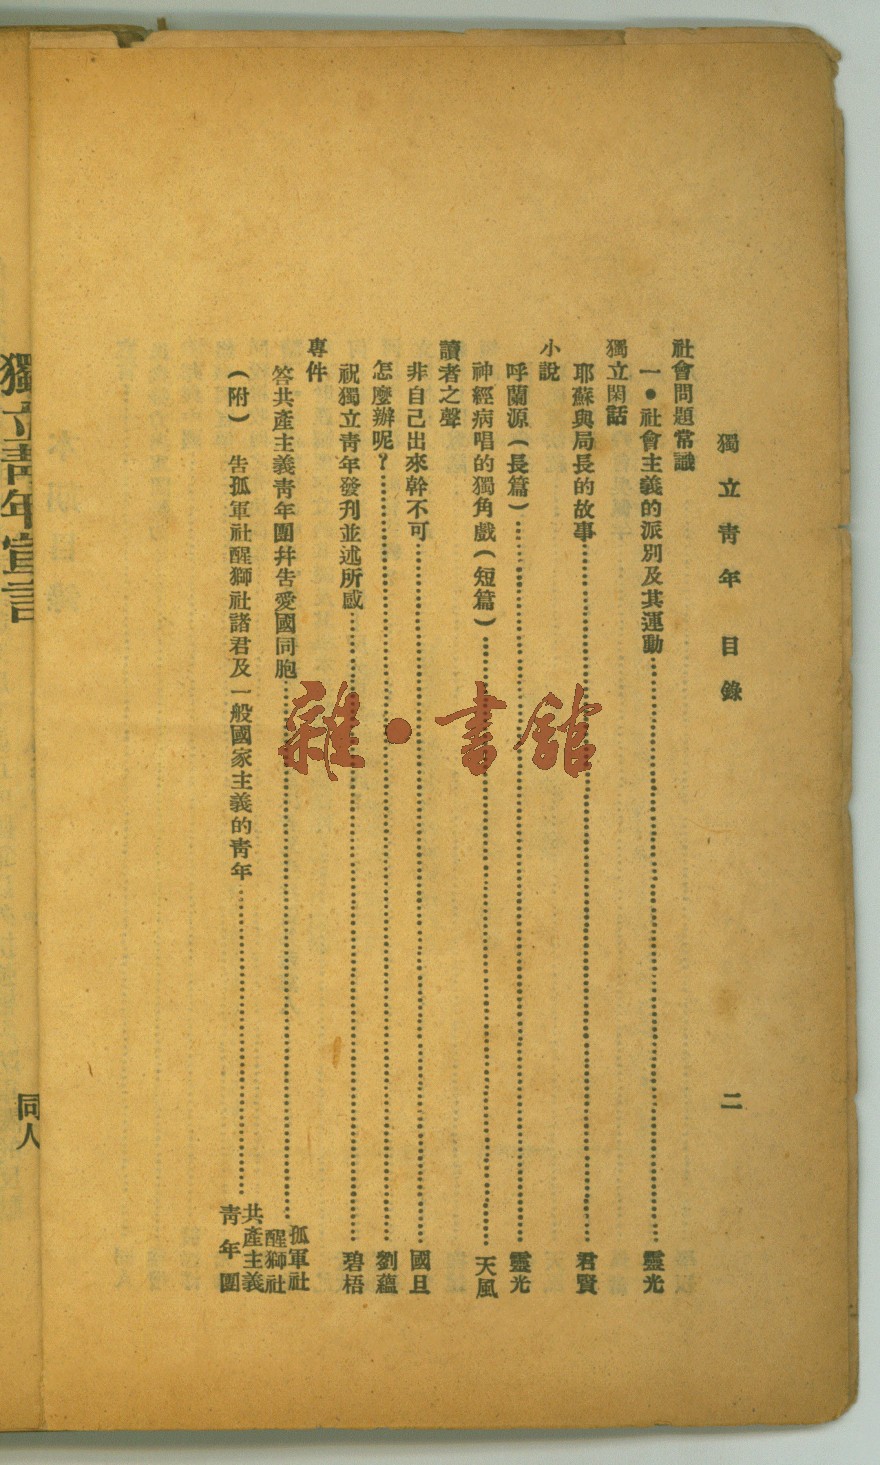 獨立靑年 目錄 二
社會問題常識
一●社會主義的派別及其運動……靈光
獨立閑話
耶蘇與局長的故事……君賢
小說
呼蘭源(長篇)……靈光
神經病唱的獨角戲(短篇)……天風
讀者之聲
非自己出來幹不可……國且
怎麽辦呢?……劉蘊
祝獨立靑年發刋並述所感……碧梧
專件
答共產主義靑年團幷吿愛國同胞……孤軍社 醒獅社
(附) 吿孤軍社醒獅社諸君及一般國家主義的靑年……共產主義靑年團
獨立靑年宣言
同人
雜·書館